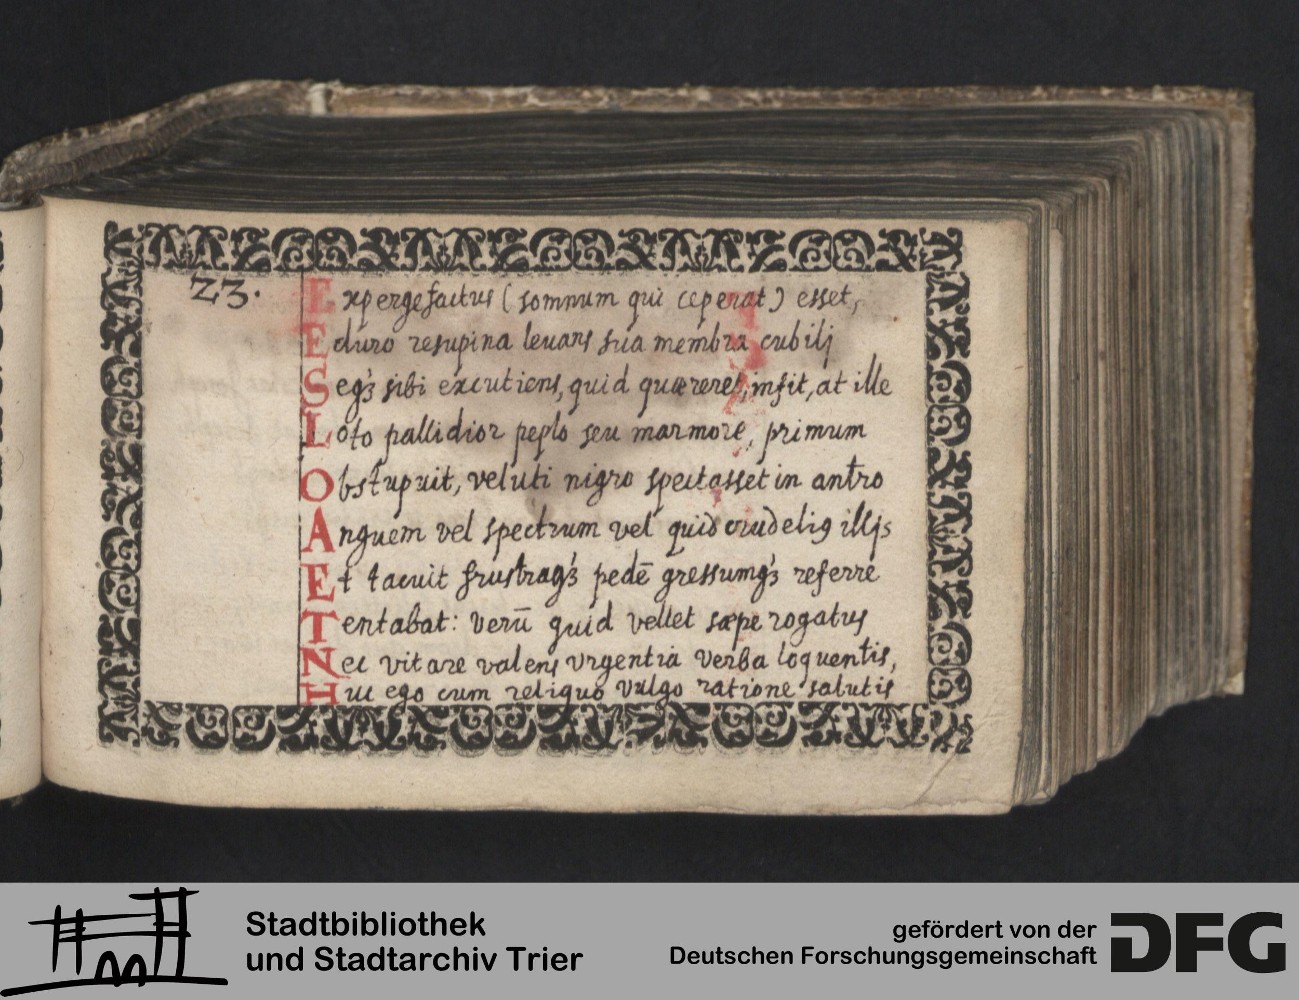 23.
Expergefactus (somnum qui ceperat) esset,
E duro resupina levans sua membra cubili
Segꝫ sibi excutiens, quid quæreret, insit, at ille
Loto pallidior peplo seu marmore, primum
Obstupuit, veluti nigro spectasset in antro
Anguem vel spectrum vel quid crudelig illis
Et tacuit frustragꝫ pedē gressumgꝫ referre
Tentabat: verū quid vellet sæpe rogatus
Nec vitare valens vrgentia verba loquentis,
Huc ego cum reliquo vulgo ratione salutis
Stadtbibliothek
und Stadtarchiv Trier
gefördert von der
Deutschen Forschungsgemeinschaft
DFG